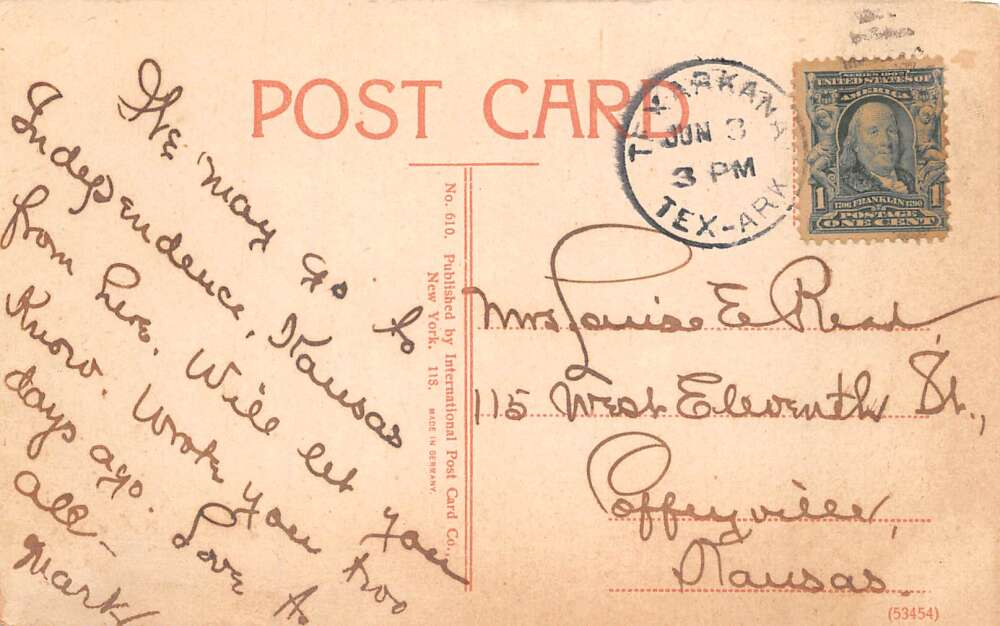 POST CARD
We may go to
Independence, Kansas
from here. Will let you
know. Wrote you two
days ago. Love to
all-
Mark
No. 610. Published by International Post Card Co.,
New York. 118. MADE IN GERMANY.
TEXARKANA
JUN 3
3 PM
TEX-ARK
SERIES 1902
UNITED STATES OF
AMERICA
1 1
1706 FRANKLIN 1790
POSTAGE
ONE CENT
Mrs Louise E Read,
115 West Eleventh St.,
Coffeyville,
Kansas.
(53454)